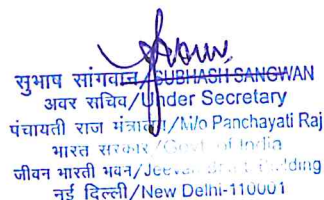 सुभाष सांगवान/SUBHASH SANGWAN
अवर सचिव/Under Secretary
पंचायती राज मंत्रालय/M/o Panchayati Raj
भारत सरकार/Govt. of India
जीवन भारती भवन/Jeevan Bharti Building
नई दिल्ली/New Delhi-110001